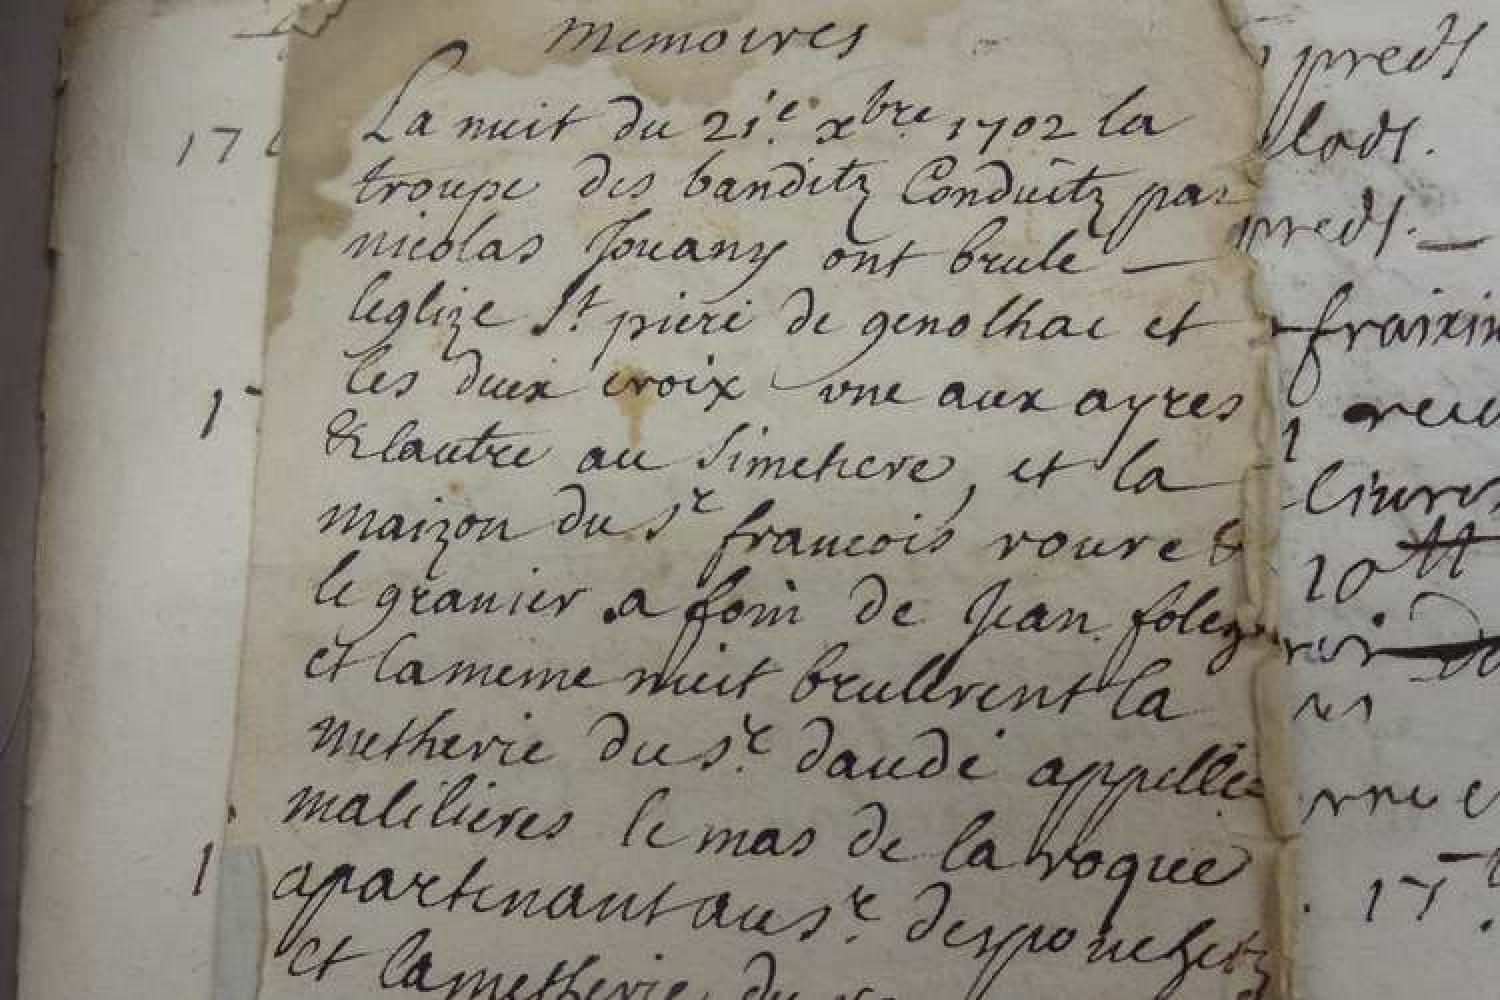 memoires
La nuit du 21.e xbre 1702 la
troupe des banditz Conduitz par
nicolas Jouany ont brule —
leglize St. piere de genolhac et
les deux croix une aux ayres
& lautre au Simetiere, et la
maizon du sr francois roure &
le granier a foin de Jean foleg
et la meme nuit brullerent la
metherie du sr. daudé appellée
malilieres le mas de la roque
apartenant au sr. desponchetz
et la metherie du
17
1
1
preds
lods.
preds. —
fraixin
1
livres
10 tt
17